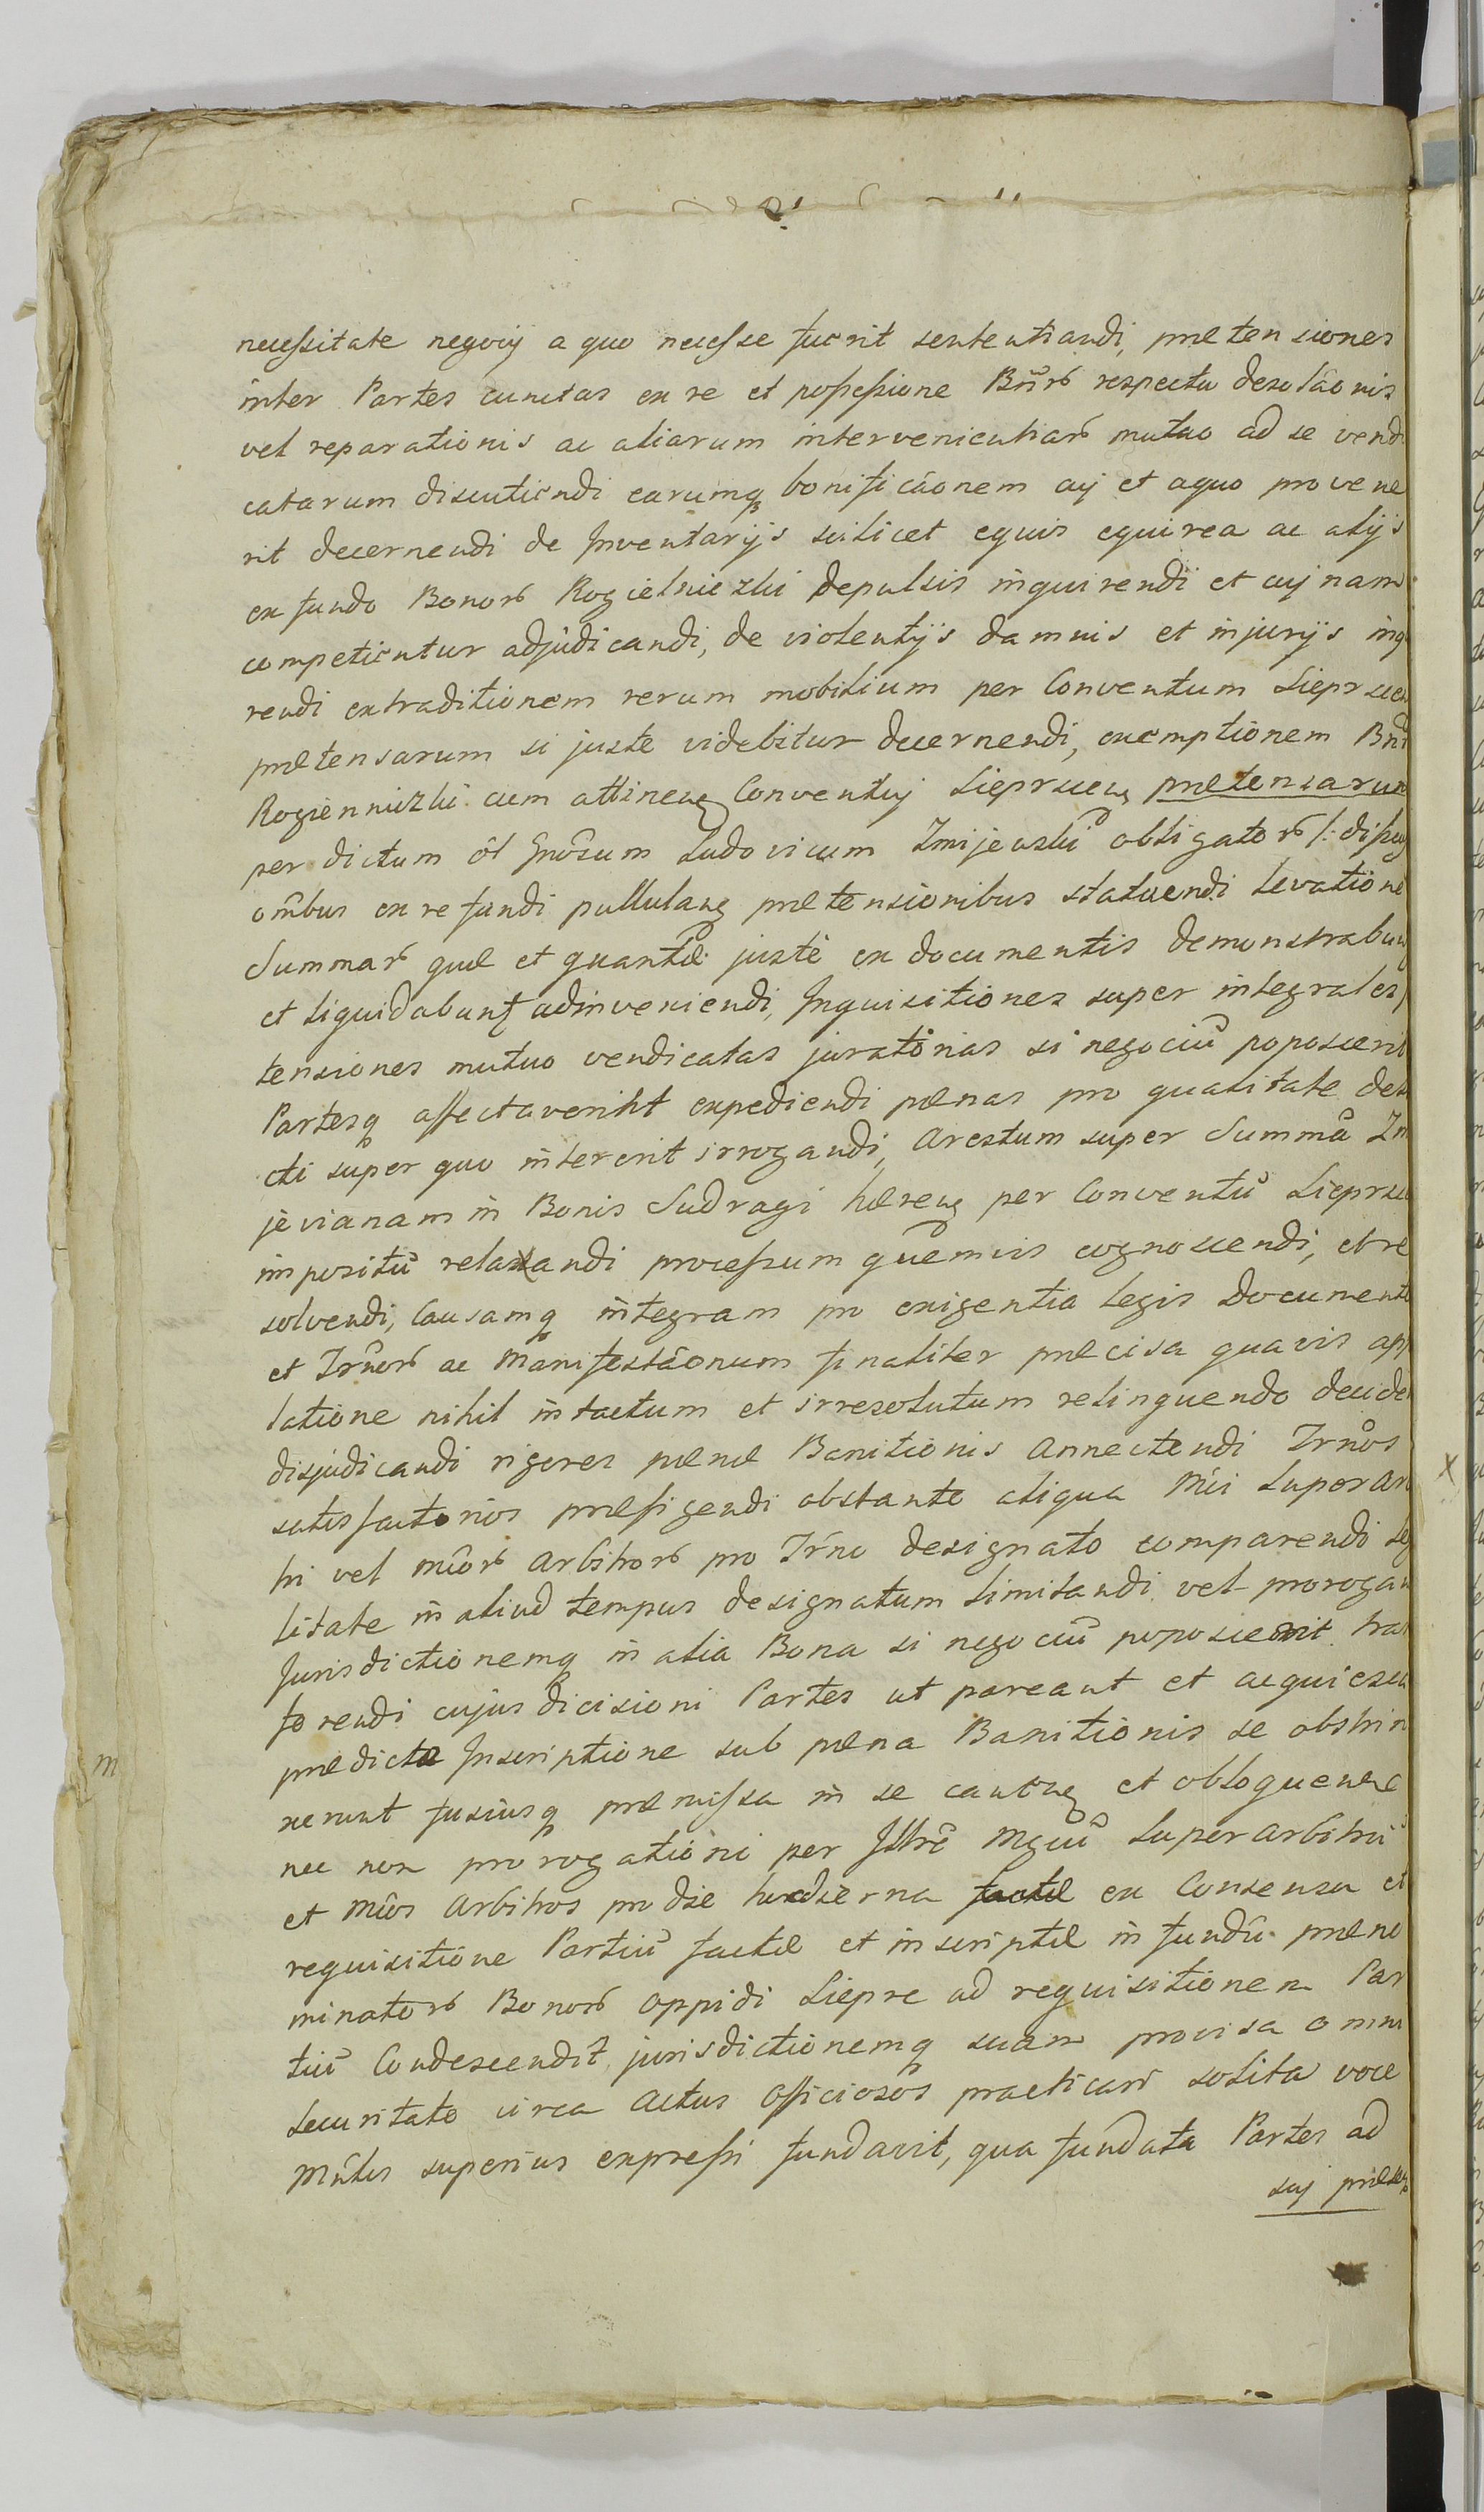 necessitate negocij a quo necesse fuerit sententiandi, prætensiones
inter Partes cunctas ex re et possessione Bnor͠ respectu desolãonis
vel reparationis ac aliarum intervenientiar͠ mutuo ad se vendi
catarum discutiendi earumq bonificãonem cuj et aquo provene
rit decernendi de Inventarijs scilicet equis equirea ac alijs
ex fundo Bonor͠ Rogielniczki depulsis inquirendi et cuj nam
competientur adjudicandi, de violentijs damnis et injurijs inq
rendi extraditionem rerum mobilium per Conventum Lieprscen
prætensarum si juste videbitur decernendi, exemptionem Bnr
Rogienniczki cum attineñ Conventuj Lieprsceñ prætensarum
per dictum ol Gnosum Ludovicum Zmijewski obligator͠ /: dispo
ombus ex re fundi pullulañ prætensionibus statuendi levatione
Summar͠ quæ et quantæ juste ex documentis demonstrabun
et liquidabunt adinveniendi, Inquisitiones super integrales
tensiones mutuo vendicatas juratorias si negociũ poposcerit
Partesq affectaverint expediendi pænas pro qualitate deli
cti super quo intererit irrogandi, Arestum super Summã Zm
jevianam in Bonis Sudragi hæreñ per Conventũ Lieprsce
impositũ relaxandi processum quemvis cognoscendi, et re
solvendi, Causamq integram pro exigentia Legis Documento
et Trnor͠ ac Manifestãonum finaliter præcisa quavis app
latione nihil intactum et irresolutum relinquendo decide
disjudicandi rigores pænæ Banitionis annectendi Trnos
satisfactorios præfigendi obstante aliqua Mci Superar
tri vel mcor͠ arbitror͠ pro Trno designato comparendi leg
litate in aliud tempus designatum limitandi vel prorogan
Jurisdictionemq in alia Bona si negociũ poposcerit tra
ferendi cujus dicisioni Partes ut pareant et acquiesca
prædicta Inscriptione sub pæna Banitionis se obstrin
m
xerunt fusiusq præmissa in se cantañ et obloqueneæ
nec non prorogationi per Illrẽ Mgcũ Superarbitrũ
et mcos Arbitros pro die hodierna factæ ex Consensu et
requisitione Partiũ factæ et inscriptæ in fundũ præno
minator͠ Bonor͠ Oppidi Liepre ad requisitionem Par
tiũ Condescendit jurisdictionemq suam provisa omni
securitate circa Actus Officiosos practicari solita voce
Mnlis superius expressi fundavit, qua fundata Partes ad
suj præseñ